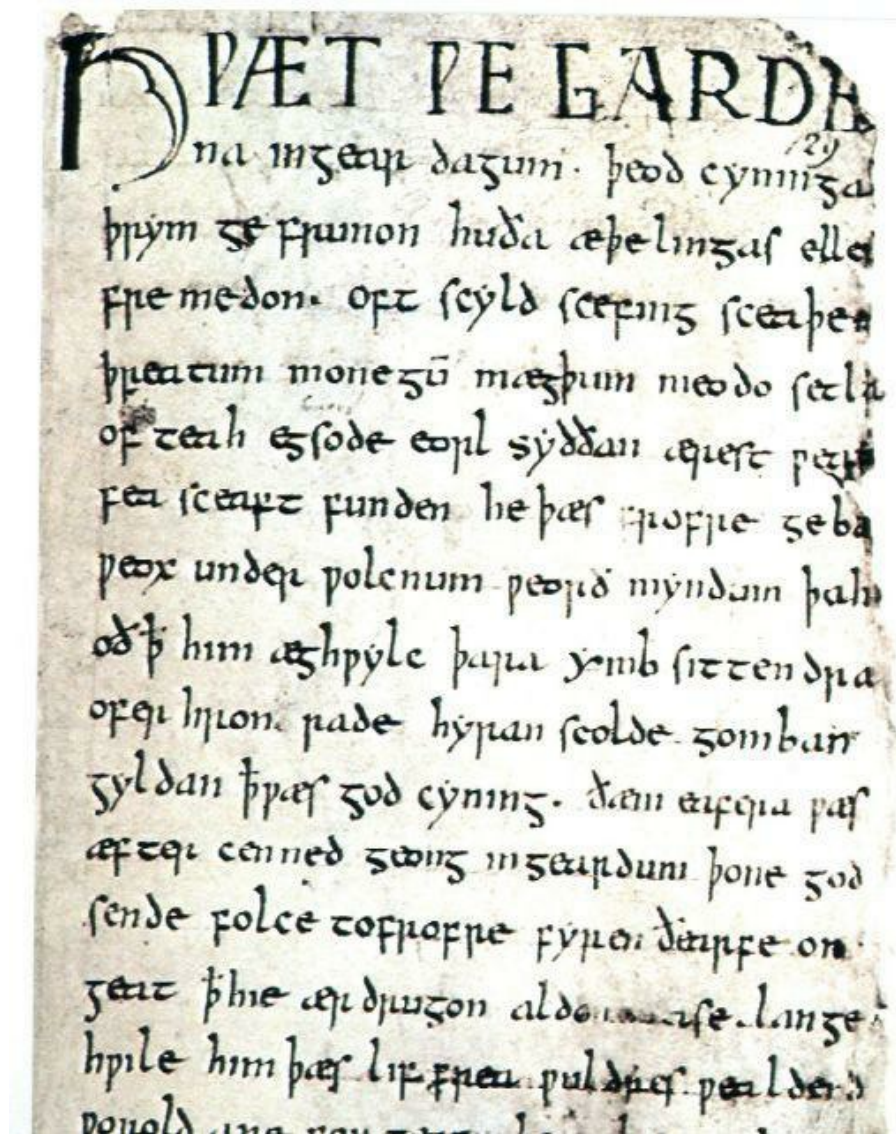 HǷÆT ǷE GARDE
na ingear dagum. þeod cyninga
þrym ge frunon huða æþelingas elle
fre medon. oft scyld scefing sceaþe
þreatum monegū mægþum meodo setla
of teah egsode eorl syððan ærest ƿear
fea sceaft funden he þæs frofre geba
ƿeox under ƿolcnum ƿeorð myndum þah
oð ꝥ him æghƿylc þara ymb sittendra
ofer hron rade hyran scolde gomban
gyldan ꝥ ƿæs god cyning. ðæm eafera ƿæs
æfter cenned geong ingeardum þone god
sende folce tofrofre fyren ðearfe on
geat ꝥ hie ær drugon aldo ase. lange
hƿile him þæs lif frea ƿuldres ƿealdend